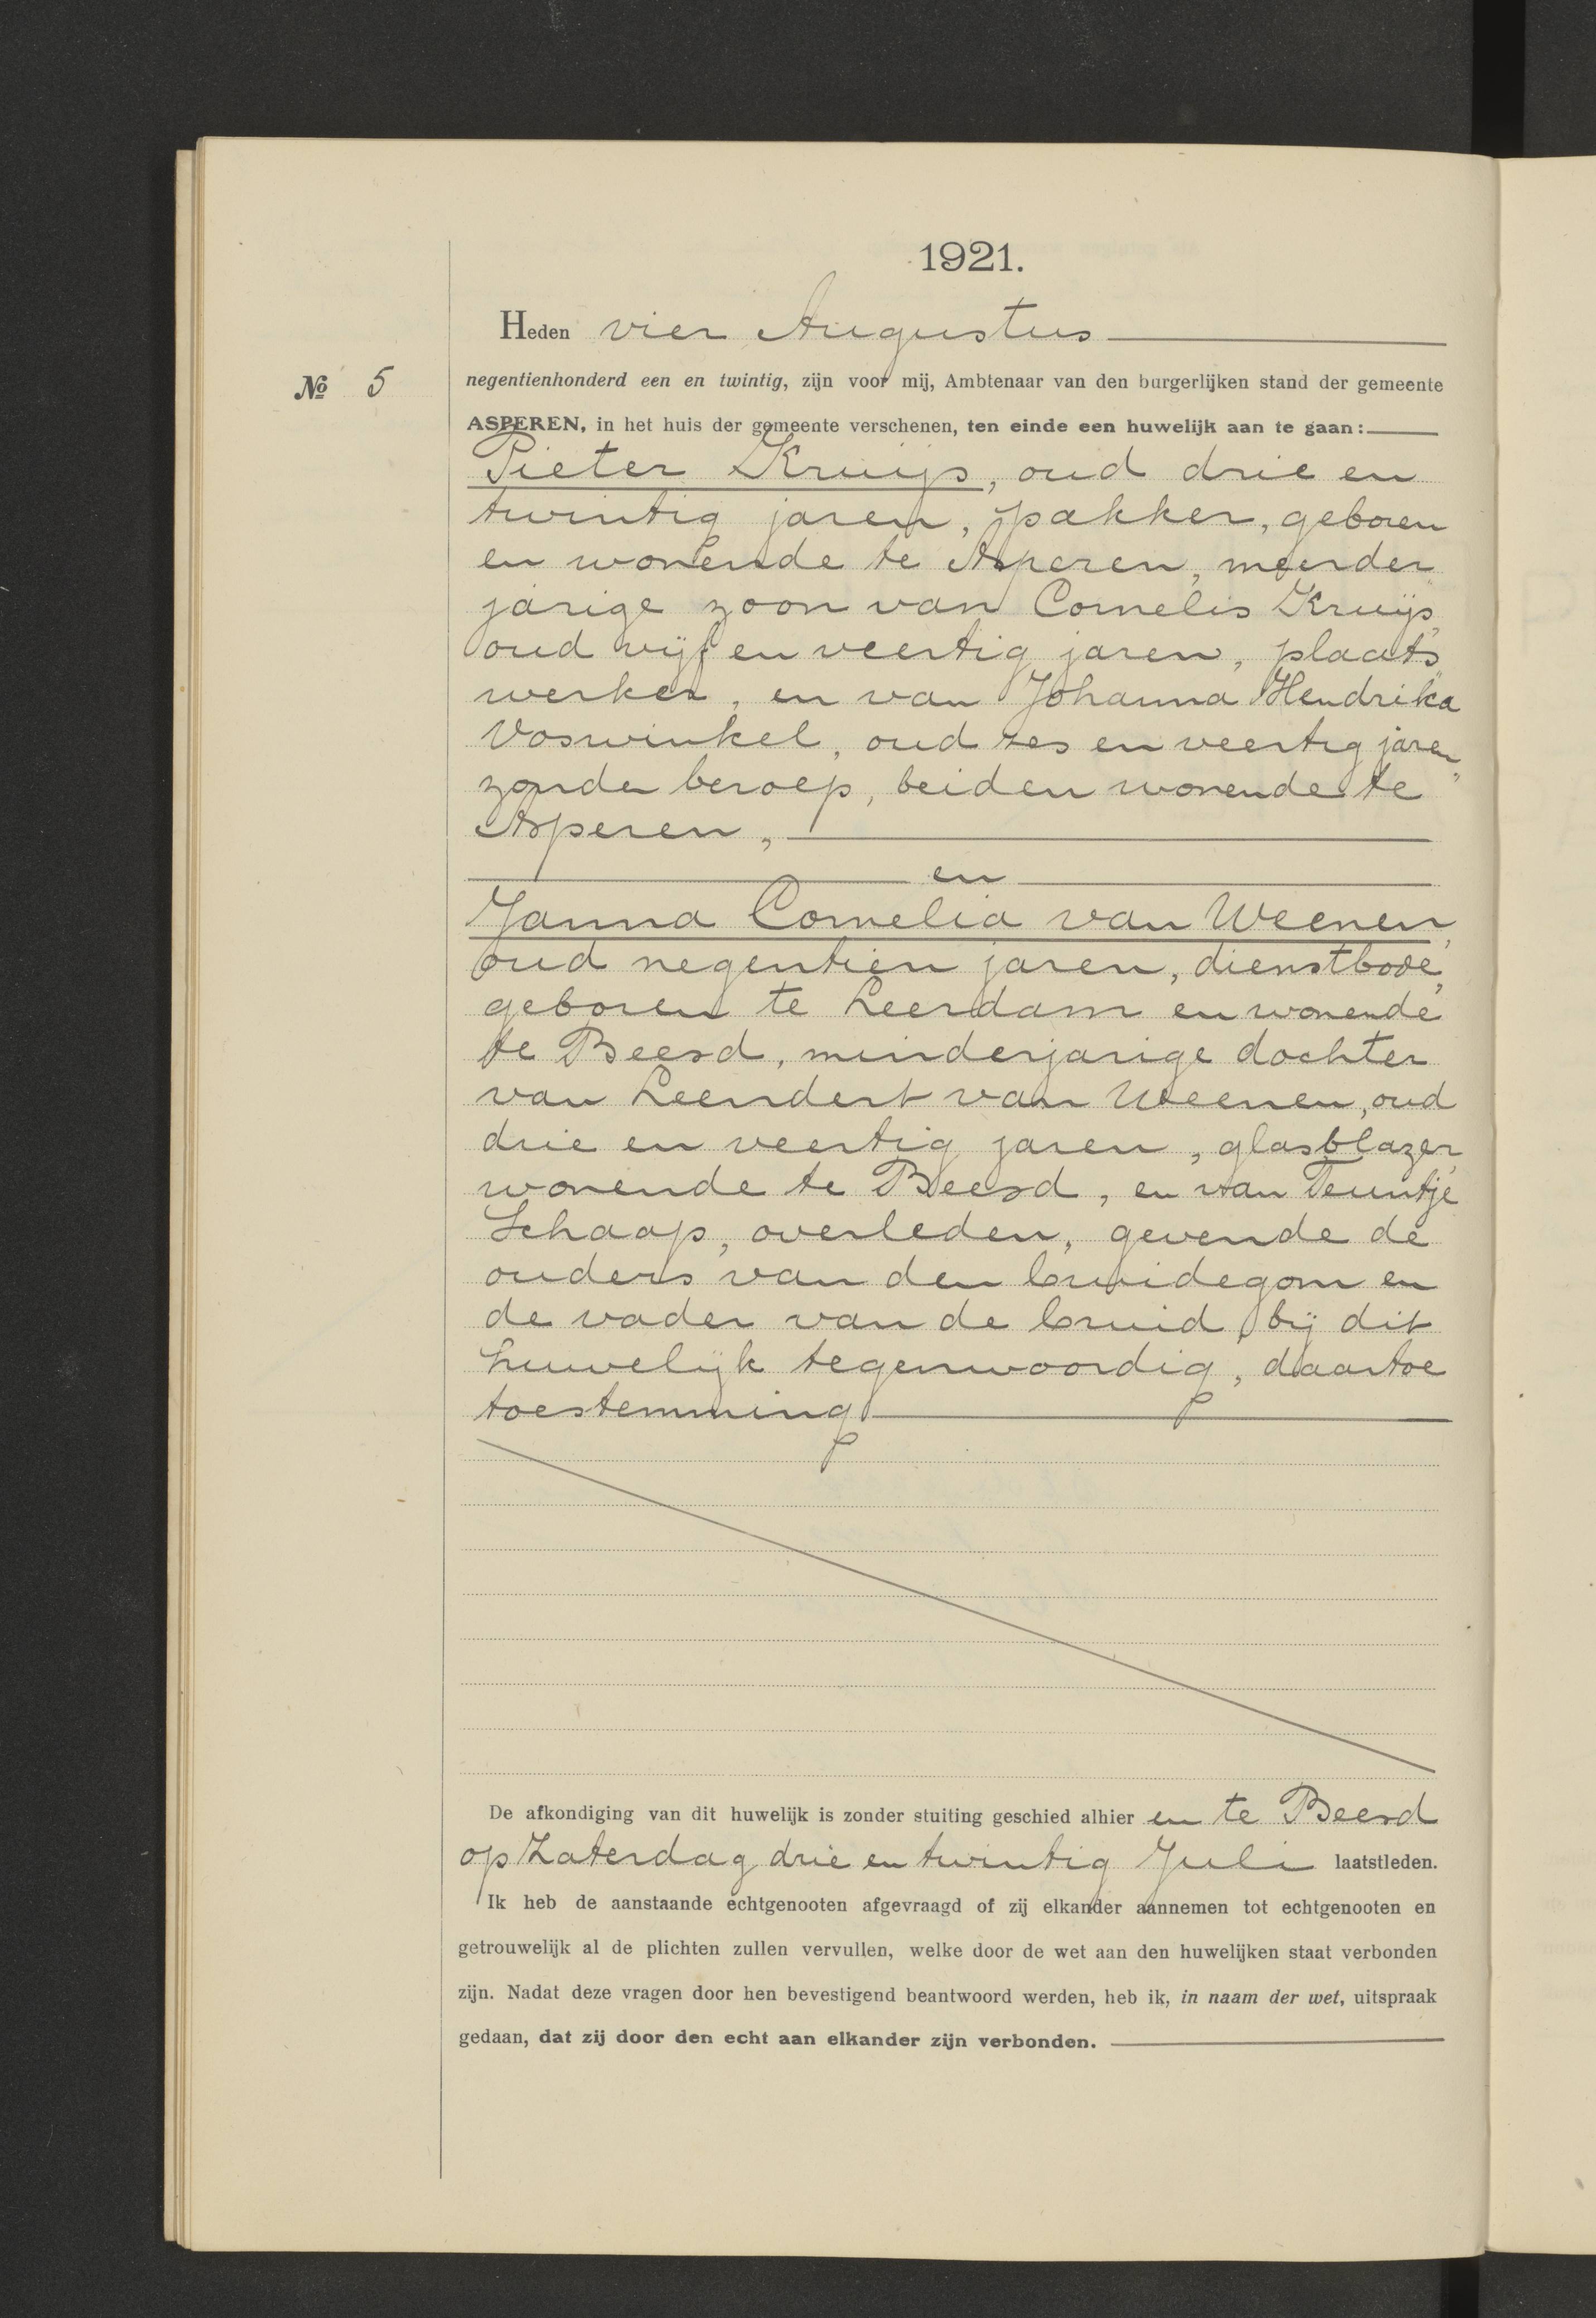 1921.
Heden vier Augustus
№ 5
negentienhonderd een en twintig, zijn voor mij, Ambtenaar van den burgerlijken stand der gemeente
ASPEREN, in het huis der gemeente verschenen, ten einde een huwelijk aan te gaan:
Pieter Kruijs, oud drie en
twintig jaren, pakker, geboren
en wonende te Asperen, meerder
jarige zoon van Cornelis Kruijs,
oud vijf en veertig jaren, plaats
werker, en van Johanna Hendrika
Voswinkel, oud zes en veertig jaren
zonder beroep, beiden wonende te
Asperen,
en
Janna Cornelia van Weenen,
oud negentien jaren, dienstbode,
geboren te Leerdam en wonende
te Beesd, minderjarige dochter
van Leendert van Weenen, oud
drie en veertig jaren, glasblazer,
wonende te Beesd, en van Teuntje
Schaap, overleden, gevende de
ouders van den bruidegom en
de vader van de bruid, bij dit
huwelijk tegenwoordig, daartoe
toestemming
De afkondiging van dit huwelijk is zonder stuiting geschied alhier en te Beesd
op Zaterdag drie en twintig Juli laatstleden.
Ik heb de aanstaande echtgenooten afgevraagd of zij elkander aannemen tot echtgenooten en
getrouwelijk al de plichten zullen vervullen, welke door de wet aan den huwelijken staat verbonden
zijn. Nadat deze vragen door hen bevestigend beantwoord werden, heb ik, in naam der wet, uitspraak
gedaan, dat zij door den echt aan elkander zijn verbonden.